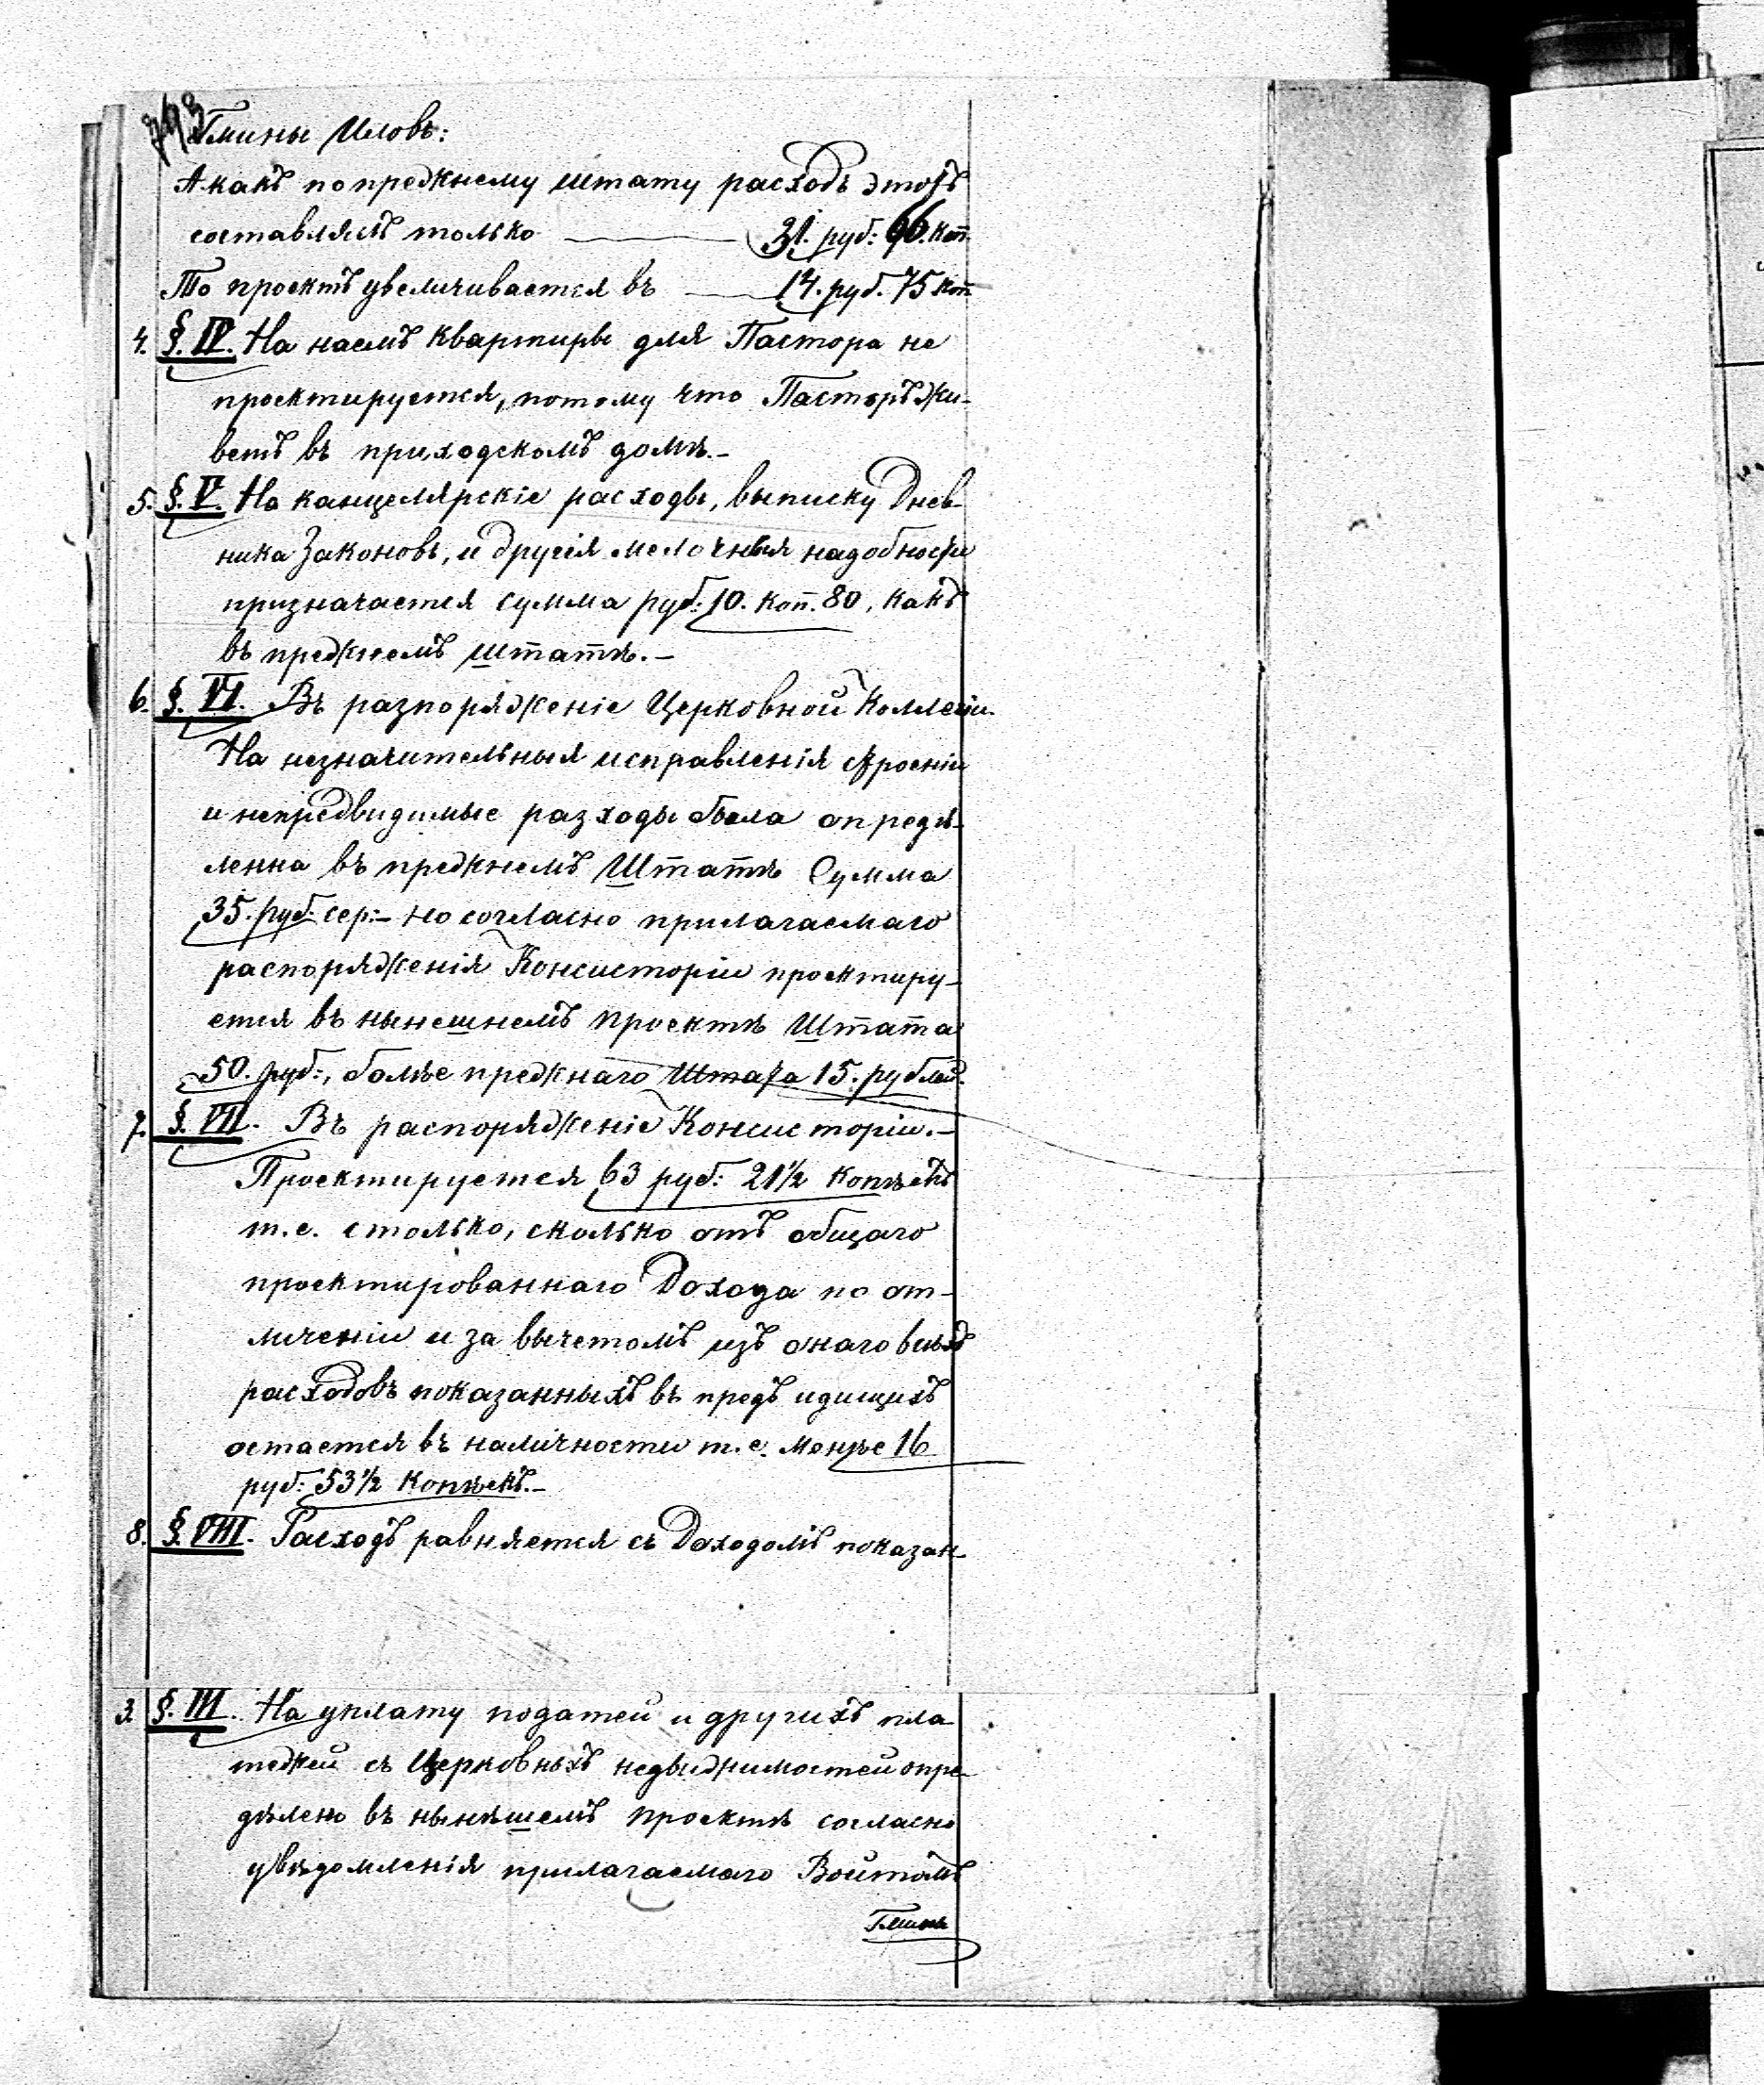 793
Гмины Иловъ:
А какъ по прежнему штату расходъ этотъ
составлялъ только — 31. руб: 66. коп.
То проектъ увеличивается въ — 14. руб. 75 коп
4. §. IV. На наемъ квартиры для Пастора не
проектируется, потому что Пасторъ жи-
ветъ въ приходскомъ домѣ.-
5. §. V. На канцелярскіе расходы, выписку Днев-
ника Законовъ, и другія мелочныя надобности
призначается сумма руб: 10. коп. 80, какъ
въ прежнемъ штатѣ.-
6. §. VI. Въ разпоряженіе Церковной Коллегіи.
На незначительныя исправленія строеній
и непредвидимые разходы была опредѣ-
ленна въ прежнемъ Штатѣ Сумма
35. руб: сер:- но согласно прилагаемаго
распоряженія Консисторіи проектиру-
ется въ нынешнемъ проектѣ Штата
50. руб:, болѣе прежнаго Штата 15. рублей.
7. §. VII. Въ распоряженіе Консисторіи.-
Проектируется 63 руб: 21½ копѣекъ
т. е. столько, сколько отъ общаго
проектированнаго Дохода по от-
личеніи и за вычетомъ изъ онаго всѣхъ
расходовъ показанныхъ въ предъ идищихъ
остается въ наличности т. е. менѣе 16
руб: 53½ копѣекъ.-
8. §. VIII. Расходъ равняется съ Доходомъ показан-
3. §. III. На уплату податей и другихъ пла
тежей съ Церковныхъ недвижимостей опре-
дѣлено въ нынѣшемъ проектѣ согласно
увѣдомленія прилагаемаго Войтомъ
Гмины